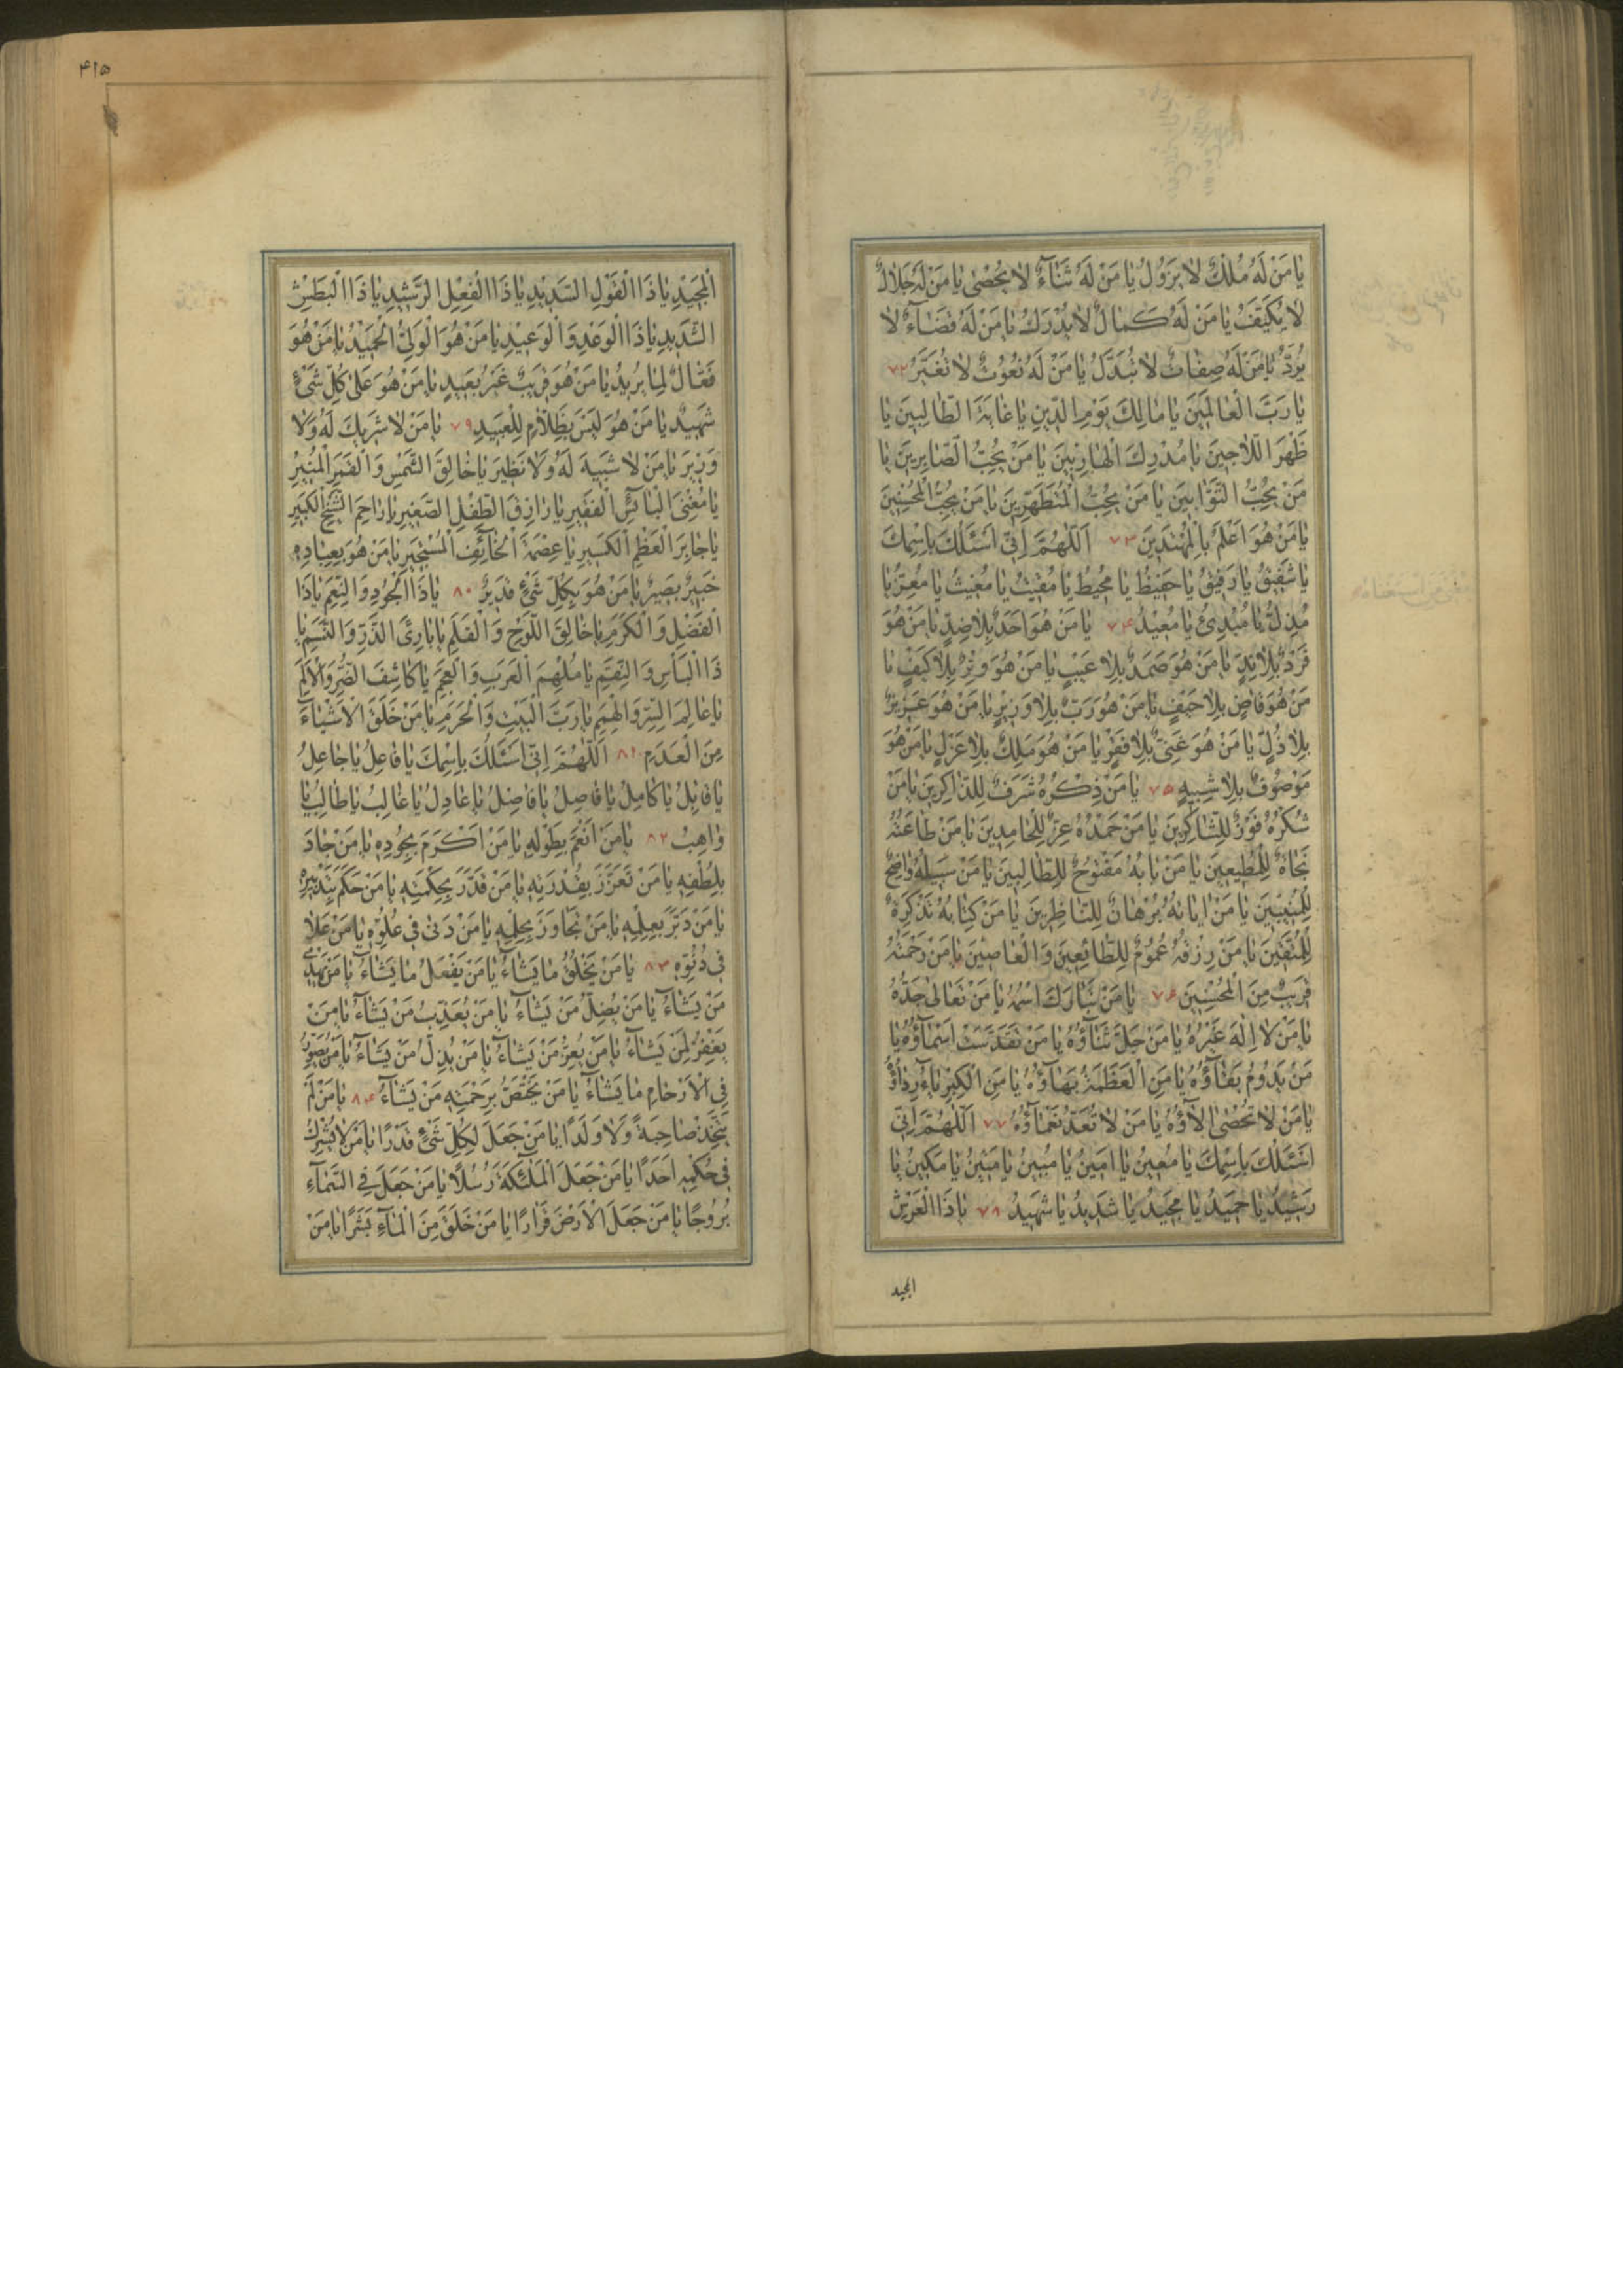 يا مَنْ لَهُ مُلْكٌ لا يَزُولُ يا مَنْ لَهُ ثَنآءٌ لا يُحْصى يا مَنْ لَهُ جَلالٌ
لا يُكَيَّفُ يا مَنْ لَهُ كَمالٌ لا يُدْرَكُ يا مَنْ لَهُ قَضآءٌ لا
يُرَدُّ يا مَنْ لَهُ صِفاتٌ لا تُبَدَّلُ يا مَنْ لَهُ نُعُوتٌ لا تُغَيَّرُ ٧٢
يا رَبَّ الْعالَمينَ يا مالِكَ يَوْمِ الدّينِ يا غايَةَ الطّالِبينَ يا
ظَهْرَ اللّاجينَ يا مُدْرِكَ الْهارِبينَ يا مَنْ يُحِبُّ الصّابِرينَ يا
مَنْ يُحِبُّ التَّوّابينَ يا مَنْ يُحِبُّ الْمُتَطَهِّرينَ يا مَنْ يُحِبُّ الْمُحْسِنينَ
يا مَنْ هُوَ اَعْلَمُ بِالْمُهْتَدينَ ٧٣ اَللّهُمَّ اِنّى اَسْئَلُكَ بِاسْمِكَ
يا شَفيقُ يا رَفيقُ يا حَفيظُ يا مُحيطُ يا مُقيتُ يا مُغيثُ يا مُعِزُّ يا
مُذِلُّ يا مُبْدِئُ يا مُعيدُ ٧۴ يا مَنْ هُوَ اَحَدٌ بِلا ضِدٍّ يا مَنْ هُوَ
فَرْدٌ بِلا نِدٍّ يا مَنْ هُوَ صَمَدٌ بِلا عَيْبٍ يا مَنْ هُوَ وِتْرٌ بِلا كَيْفٍ يا
مَنْ هُوَ قاضٍ بِلا حَيْفٍ يا مَنْ هُوَ رَبٌّ بِلا وَزيرٍ يا مَنْ هُوَ عَزيزٌ
بِلا ذُلٍّ يا مَنْ هُوَ غَنِىٌّ بِلا فَقْرٍ يا مَنْ هُوَ مَلِكٌ بِلا عَزْلٍ يا مَنْ هُوَ
مَوْصُوفٌ بِلا شَبيهٍ ٧۵ يا مَنْ ذِكْرُهُ شَرَفٌ لِلذّاكِرينَ يا مَنْ
شُكْرُهُ فَوْزٌ لِلشّاكِرينَ يا مَنْ حَمْدُهُ عِزٌّ لِلْحامِدينَ يا مَنْ طاعَتُهُ
نَجاةٌ لِلْمُطيعينَ يا مَنْ بابُهُ مَفْتُوحٌ لِلطّالِبينَ يا مَنْ سَبيلُهُ واضِحٌ
لِلْمُنيبينَ يا مَنْ اياتُهُ بُرْهانٌ لِلنّاظِرينَ يا مَنْ كِتابُهُ تَذْكِرَةٌ
لِلْمُتَّقينَ يا مَنْ رِزْقُهُ عُمُومٌ لِلطّائِعينَ وَالْعاصينَ يا مَنْ رَحْمَتُهُ
قَريبٌ مِنَ الْمُحْسِنينَ ٧۶ يا مَنْ تَبارَكَ اسْمُهُ يا مَنْ تَعالى جَدُّهُ
يا مَنْ لا اِلهَ غَيْرُهُ يا مَنْ جَلَّ ثَنآؤُهُ يا مَنْ تَقَدَّسَتْ اَسْمآؤُهُ يا
مَنْ يَدُومُ بَقآؤُهُ يا مَنِ الْعَظَمَةُ بَهآؤُهُ يا مَنِ الْكِبْرِياءُ رِداؤُهُ
يا مَنْ لا تُحْصى الآؤُهُ يا مَنْ لا تُعَدُّ نَعْمآؤُهُ ٧٧ اَللّهُمَّ اِنّى
اَسْئَلُكَ بِاسْمِكَ يا مُعينُ يا اَمينُ يا مُبينُ يا مَتينُ يا مَكينُ يا
رَشيدُ يا حَميدُ يا مَجيدُ يا شَديدُ يا شَهيدُ ٧٨ يا ذَا الْعَرْشِ
المجيد
۴١۵
الْمَجيدِ يا ذَا الْقَوْلِ السَّديدِ يا ذَا الْفِعْلِ الرَّشيدِ يا ذَا الْبَطْشِ
الشَّديدِ يا ذَا الْوَعْدِ وَالْوَعيدِ يا مَنْ هُوَ الْوَلِىُّ الْحَميدُ يا مَنْ هُوَ
فَعّالٌ لِما يُريدُ يا مَنْ هُوَ قَريبٌ غَيْرُ بَعيدٍ يا مَنْ هُوَ عَلى كُلِّ شَىْءٍ
شَهيدٌ يا مَنْ هُوَ لَيْسَ بِظَلّامٍ لِلْعَبيدِ ٧٩ يا مَنْ لا شَريكَ لَهُ وَلا
وَزيرَ يا مَنْ لا شَبيهَ لَهُ وَلا نَظيرَ يا خالِقَ الشَّمْسِ وَالْقَمَرِ الْمُنيرِ
يا مُغْنِىَ الْبآئِسِ الْفَقيرِ يا رازِقَ الطِّفْلِ الصَّغيرِ يا راحِمَ الشَّيْخِ الْكَبيرِ
يا جابِرَ الْعَظْمِ الْكَسيرِ يا عِصْمَةَ الْخآئِفِ الْمُسْتَجيرِ يا مَنْ هُوَ بِعِبادِهِ
خَبيرٌ بَصيرٌ يا مَنْ هُوَ بِكُلِّ شَىْءٍ قَديرٌ ٨٠ يا ذَا الْجُودِ وَالنِّعَمِ يا ذَا
الْفَضْلِ وَالْكَرَمِ يا خالِقَ اللَّوْحِ وَالْقَلَمِ يا بارِئَ الذَّرِّ وَالنَّسَمِ يا
ذَا الْبَأْسِ وَالنِّقَمِ يا مُلْهِمَ الْعَرَبِ وَالْعَجَمِ يا كاشِفَ الضُّرِّ وَالْاَلَمِ
يا عالِمَ السِّرِّ وَالْهِمَمِ يا رَبَّ الْبَيْتِ وَالْحَرَمِ يا مَنْ خَلَقَ الْاَشْيآءَ
مِنَ الْعَدَمِ ٨١ اَللّهُمَّ اِنّى اَسْئَلُكَ بِاسْمِكَ يا فاعِلُ يا جاعِلُ
يا قابِلُ يا كامِلُ يا فاصِلُ يا فاضِلُ يا عادِلُ يا غالِبُ يا طالِبُ يا
واهِبُ ٨٢ يا مَنْ اَنْعَمَ بِطَوْلِهِ يا مَنْ اَكْرَمَ بِجُودِهِ يا مَنْ جادَ
بِلُطْفِهِ يا مَنْ تَعَزَّزَ بِقُدْرَتِهِ يا مَنْ قَدَّرَ بِحِكْمَتِهِ يا مَنْ حَكَمَ بِتَدْبيرِهِ
يا مَنْ دَبَّرَ بِعِلْمِهِ يا مَنْ تَجاوَزَ بِحِلْمِهِ يا مَنْ دَنى فى عُلُوِّهِ يا مَنْ عَلا
فى دُنُوِّهِ ٨٣ يا مَنْ يَخْلُقُ ما يَشآءُ يا مَنْ يَفْعَلُ ما يَشآءُ يا مَنْ يَهْدى
مَنْ يَشآءُ يا مَنْ يُضِلُّ مَنْ يَشآءُ يا مَنْ يُعَذِّبُ مَنْ يَشآءُ يا مَنْ
يَغْفِرُ لِمَنْ يَشآءُ يا مَنْ يُعِزُّ مَنْ يَشآءُ يا مَنْ يُذِلُّ مَنْ يَشآءُ يا مَنْ يُصَوِّرُ
فِى الْاَرْحامِ ما يَشآءُ يا مَنْ يَخْتَصُّ بِرَحْمَتِهِ مَنْ يَشآءُ ٨۴ يا مَنْ لَمْ
يَتَّخِذْ صاحِبَةً وَلا وَلَدًا يا مَنْ جَعَلَ لِكُلِّ شَىْءٍ قَدْرًا يا مَنْ لا يُشْرِكُ
فى حُكْمِهِ اَحَدًا يا مَنْ جَعَلَ الْمَلئِكَةَ رُسُلًا يا مَنْ جَعَلَ فِى السَّمآءِ
بُرُوجًا يا مَنْ جَعَلَ الْاَرْضَ قَرارًا يا مَنْ خَلَقَ مِنَ الْمآءِ بَشَرًا يا مَنْ